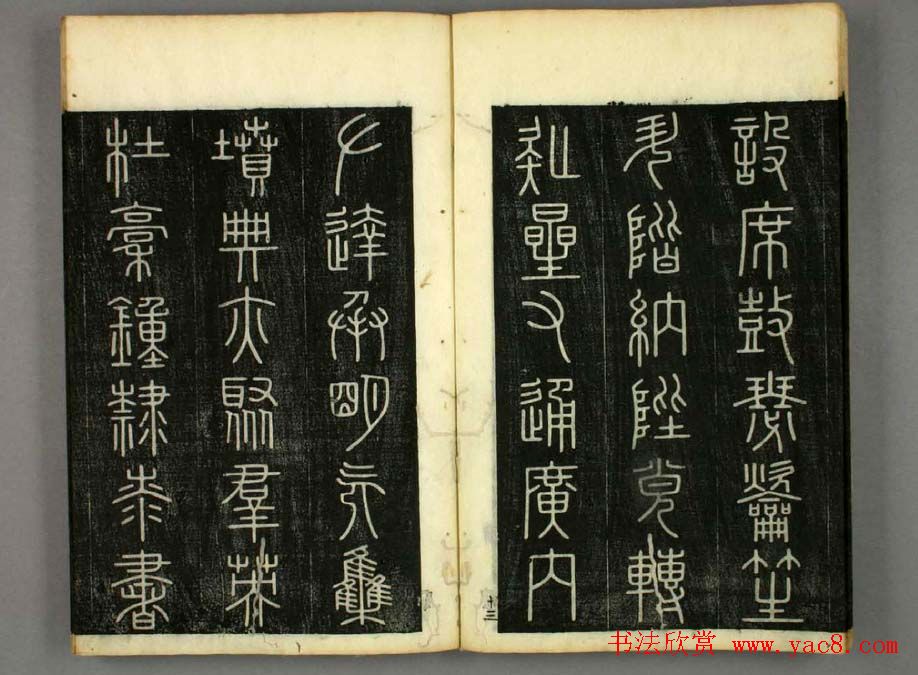 設席鼓瑟龡笙
升階納陛弁轉
疑星右通廣內
左達承明既集
墳典亦聚羣英
杜稾鍾隸漆書
书法欣赏 www.yac8.com